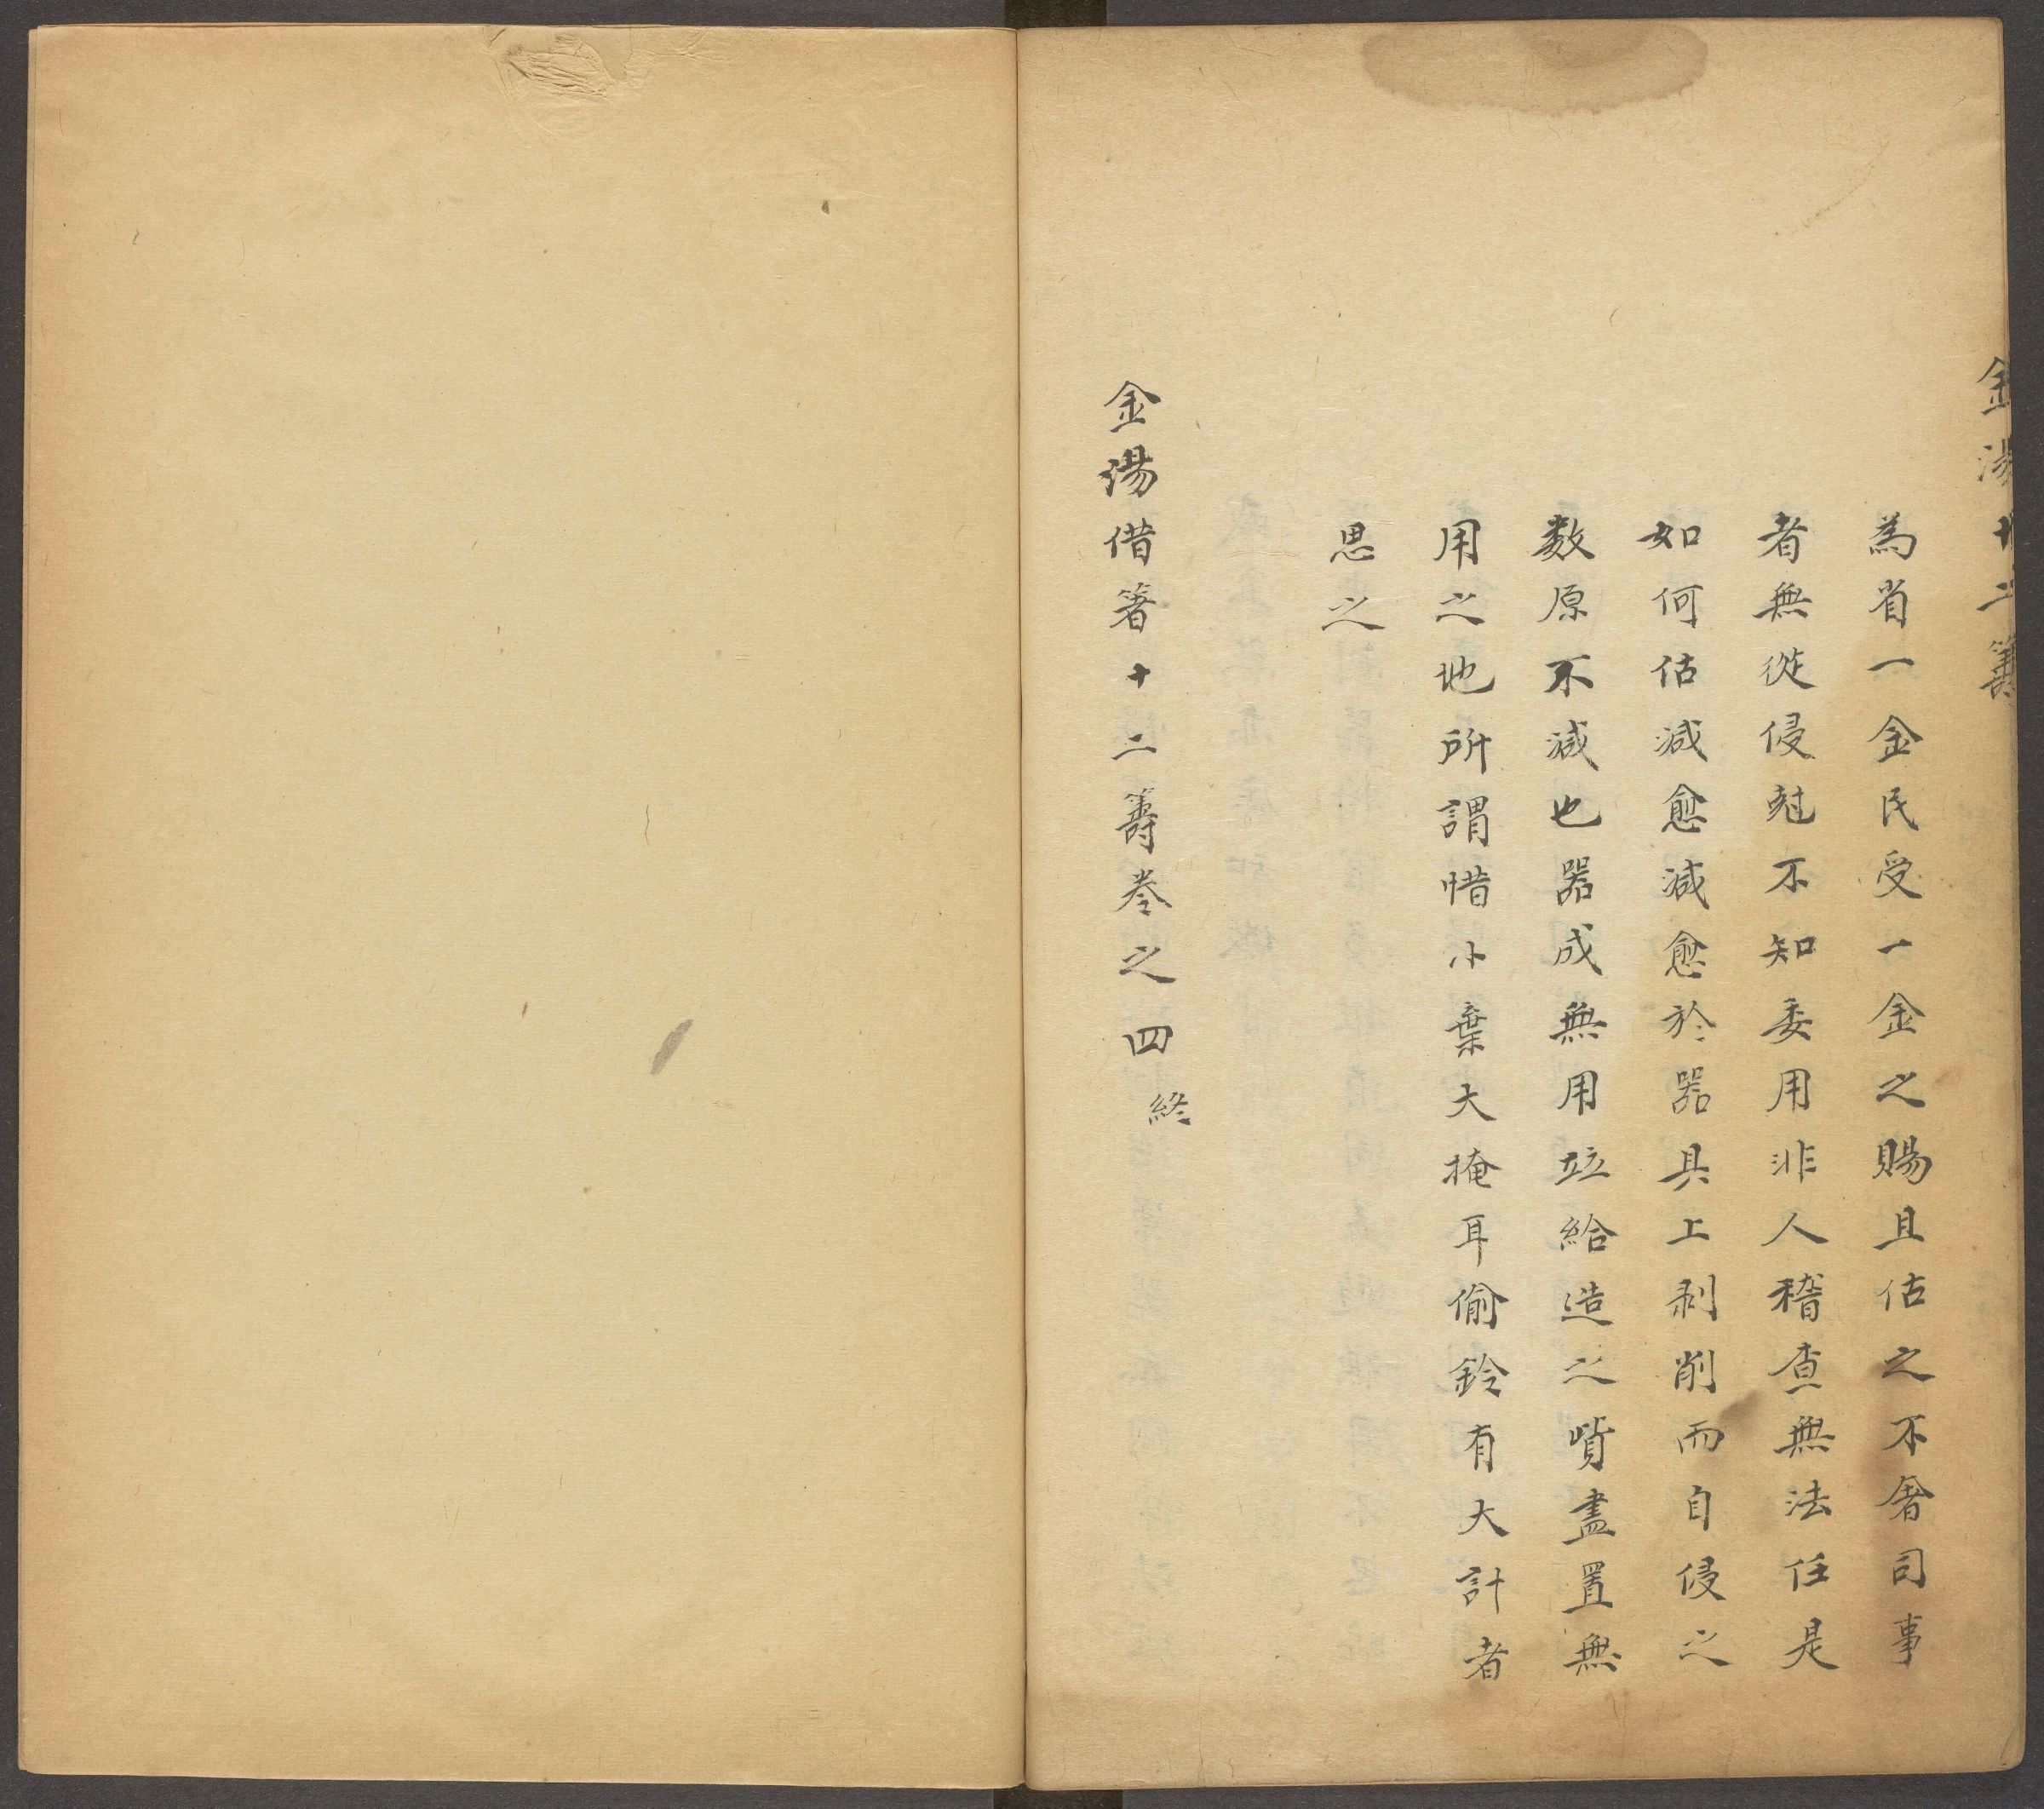 金湯十二籌
為省一金民受一金之賜且估之不奢司事
者無從侵尅不知委用非人稽查無法任是
如何估減愈減愈於器具上剥削而自侵之
数原不減也器成無用竝給造之貲盡置無
用之地所謂惜小棄大掩耳偷鈴有大計者
思之
金湯借箸十二籌卷之四終